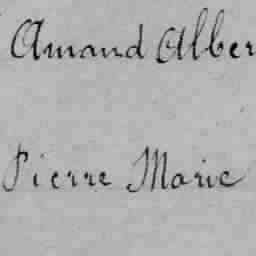 Amand Alber
Pierre Marie